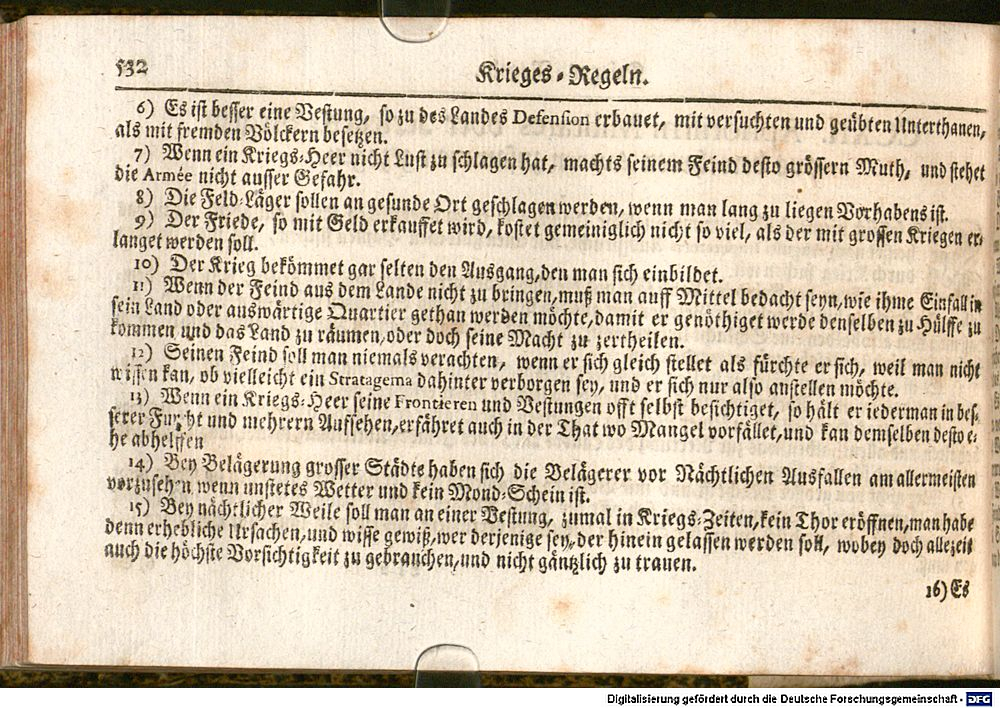 532
Krieges-Regeln.
6) Es ist besser eine Vestung, so zu des Landes Defension erbauet, mit versuchten und geübten Unterthanen,
als mit fremden Völckern besetzen.
7) Wenn ein Kriegs-Heer nicht Lust zu schlagen hat, machts seinem Feind desto grössern Muth, und stehet
die Armée nicht ausser Gefahr.
8) Die Feld-Läger sollen an gesunde Ort geschlagen werden, wenn man lang zu liegen Vorhabens ist.
9) Der Friede, so mit Geld erkauffet wird, kostet gemeiniglich nicht so viel, als der mit grossen Kriegen er-
langet werden soll.
10) Der Krieg bekömmet gar selten den Ausgang, den man sich einbildet.
11) Wenn der Feind aus dem Lande nicht zu bringen, muß man auff Mittel bedacht seyn, wie ihme Einfall in
sein Land oder auswärtige Quartier gethan werden möchte, damit er genöthiget werde denselben zu Hülffe zu
kommen und das Land zu räumen, oder doch seine Macht zu zertheilen.
12) Seinen Feind soll man niemals verachten, wenn er sich gleich stellet als fürchte er sich, weil man nicht
wissen kan, ob vielleicht ein Stratagema dahinter verborgen sey, und er sich nur also anstellen möchte.
13) Wenn ein Kriegs-Heer seine Frontieren und Vestungen offt selbst besichtiget, so hält er iederman in bes-
serer Furcht und mehrern Aufsehen, erfähret auch in der That wo Mangel vorfället, und kan demselben desto e-
he abhelffen
14) Bey Belägerung grosser Städte haben sich die Belägerer vor Nächtlichen Ausfallen am allermeisten
vorzusehen, wenn unstetes Wetter und kein Mond-Schein ist.
15) Bey nächtlicher Weile soll man an einer Vestung, zumal in Kriegs-Zeiten, kein Thor eröffnen, man habe
denn erhebliche Ursachen, und wisse gewiß, wer derjenige sey, der hinein gelassen werden soll, wobey doch allezeit
auch die höchste Vorsichtigkeit zu gebrauchen, und nicht gäntzlich zu trauen.
16) Es
Digitalisierung gefördert durch die Deutsche Forschungsgemeinschaft - DFG